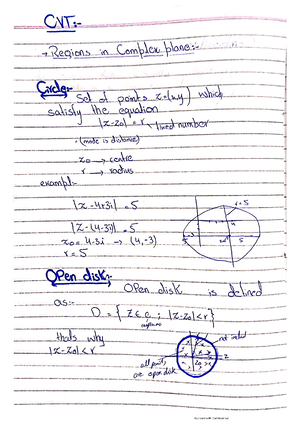 CVT:-
→ Regions in Complex plane:-
Circle:-
Set of points z=(x,y) which
satisfy the equation
|z-z₀| = r → fixed number
• (mode is distance)
z₀ → centre
r → radius
example:-
|z-4+3i| = 5
|z-(4-3i)| = 5
z₀ = 4-3i → (4,-3)
r = 5
r=5
5
Open disk:-
Open disk is defined
as:-
D = { z ∈ ; |z-z₀|<r }
that's why
|z-z₀|<r
all points
are open disk